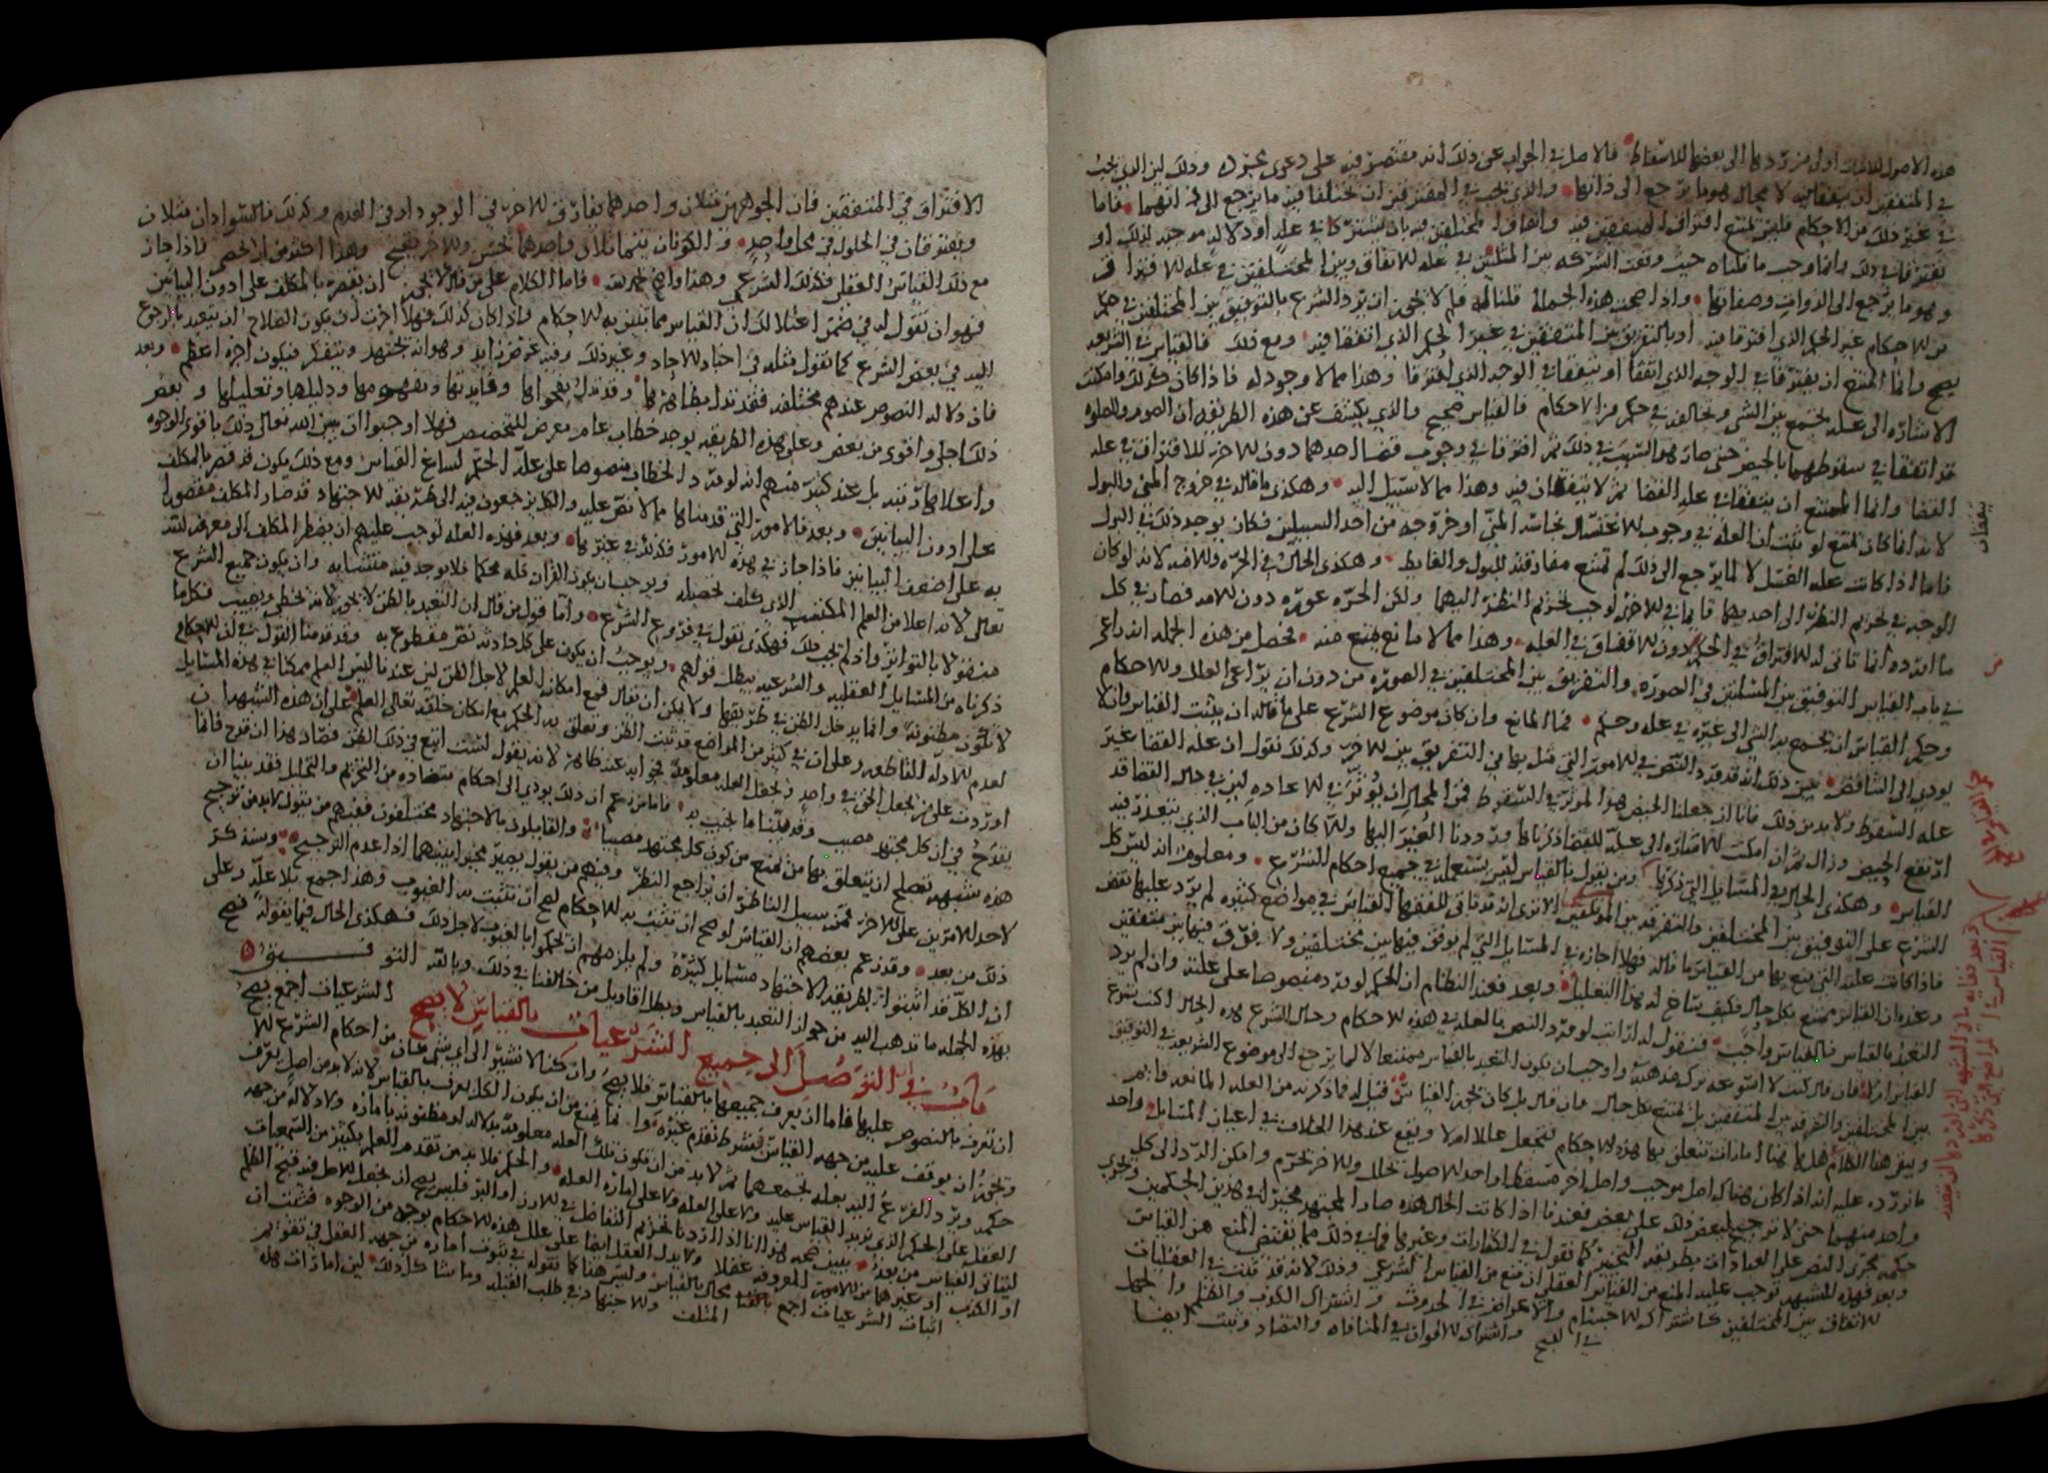 هذه الاصول للاثبات اولى من ردها الى بعضها للاسقاط فالاصل في الجواب عن ذلك انه مقتصر فيه على دعوى مجردة وذلك لان الذي يجب
في المتفقين ان يتفقا فيه لا محالة هو ما يرجع الى ذاتهما والذي يجب في المفترقين ان يختلفا فيه ما يرجع الى ذاتهما فاما
في غير ذلك من الاحكام فليس يمتنع افتراق المتفقين فيه واتفاق المختلفين فيه بان يشتركا في علة او دلالة موجبة لذلك او
يفترقا في ذلك وانما وجب ما قلناه حيث وقعت الشركة بين المثلين في علة الاتفاق وبين المختلفين في علة الافتراق
وهو ما يرجع الى الذوات وصفاتها واذا صحت هذه الجملة قلنا له فلم لا يجوز ان يرد الشرع بالتوفيق بين المختلفين في حكم
من الاحكام غير الحكم الذي افترقا فيه او بالتفريق بين المتفقين في غير الحكم الذي اتفقا فيه ومع ذلك فالقياس في الشريعة
يصح وانما الممتنع ان يفترقا في الوجه الذي اتفقا او يتفقا في الوجه الذي افترقا وهذا مما لا وجود له فاذا كان كذلك وامكنت
الاشارة الى علة تجمع بين الشي ومخالفه في حكم من الاحكام فالقياس صحيح والذي يكشف عن هذه الطريقة ان الصوم والصلوة
قد اتفقا في سقوطهما بالحيض حتى صار هو السبب في ذلك ثم افترقا في وجوب قضا احدهما دون الاخر للافتراق في علة
القضا وانما الممتنع ان يتفقا في علة القضا ثم لا يتفقان فيه وهذا مما لا سبيل اليه وهكذى ما قاله في خروج المني والبول
لانه انما كان يمتنع لو ثبت ان العلة في وجوب الاغتسال نجاسة المني او خروجه من احد السبيلين فكان يوجد ذلك في البول
فاما اذا كانت علة الغسل لا لما يرجع الى ذلك لم تمتنع مفارقته للبول والغايط وهكذى الحال في الحرة والامة لانه لو كان
الوجه في تحريم النظر الى احديهما قايما في الاخرى لوجب تحريم النظر اليهما ولكن الحرة عورة دون الامة فصار في كل
ما اورده انما تاتى له الافتراق في الحكم دون الاتفاق في العلة وهذا مما لا مانع يمنع منه فحصل من هذه الجملة انه راعى
في باب القياس التوفيق بين المثلين في الصورة والتفريق بين المختلفين في الصورة من دون ان يراعي العلل والاحكام
وحكم القياس ان يجمع به الشي الى غيره في علة وحكم فما المانع وان كان موضوع الشرع على ما قاله ان يثبت القياس فانه لا
يودي الى التناقض
علة السقوط ولا بد من ذلك فانا ان جعلنا الحيض هو المؤثر في السقوط فمن المحال ان يؤثر في الاعادة لان في حال القضا قد
ارتفع الحيض وزال
القياس وهكذى الحال في المسايل التي ذكرها ومن يقول بالقياس ليس يستعمله في جميع احكام الشرع ومعلوم انه ليس كل
الشرع على التوفيق بين المختلفين والتفرقة بين المؤتلفين الا ترى انه قد تاتى للفقها القياس في مواضع كثيرة لم يرد عليها نقض
فاذا كانت علته التي منع بها من القياس ما قاله فهلا اجازه في المسايل التي لم يوفق فيها بين مختلفين ولا فرق فيها بين متفقين
وعنده ان القياس ممتنع بكل حال فكيف ساغ له هذا التعليل وبعد فعند النظام ان الحكم لو ورد منصوصا على علته وان لم يرد
التعبد بالقياس فالقياس واجب فنقول له ارايت لو ورد النص بالعلة في هذه الاحكام وحال الشرع هذه الحال اكنت تشرع
القياس ام لا فان قال كنت لا اسوغه ترك مذهبه واوجب ان يكون التعبد بالقياس ممتنعا لا لما يرجع الى موضوع الشريعة في التوفيق
بين المختلفين والتفرقة بين المتفقين بل يمتنع بكل حال وان قال بل كان يجوز القياس قيل له فما ذكرته من العلة المانعة قايم
ويبقى هنا الكلام هل هاهنا امارات تتعلق بها هذه الاحكام فتجعل عللا ام لا ويقع عند هذا الخلاف في اعيان المسايل واحد
ما نورده عليه انه اذا كان هناك اصل موجب واصل اخر مسقط او احد الاصول محلل والاخر محرم وامكن الرد الى كل
واحد منهما حتى لا ترجيح لبعض ذلك على بعض فعندنا اذا كانت الحال هذه صار المجتهد مخيرا في هذين الحكمين ويجري
حكمه مجرى النص على العبادات بطريقة التخيير كما نقول في الكفارات وغيرها فما في ذلك مما يقتضي المنع من القياس
وبعد فهذه الشبهة توجب عليه المنع من القياس العقلي ان منع من القياس الشرعي وذلك لانه قد ثبت في العقليات
الاتفاق بين المختلفين كاشتراك الاجسام والاعراض في الحدوث واشتراك الكذب والظلم والجهل
في القبح واشتراك الالوان في المنافاة والتضاد وثبت ايضا
يتفقان
الافتراق في المتفقين فان الجوهرين مثلان واحدهما يفارق الاخر في الوجود او في العدم وكذلك فالسوادان مثلان
ويفترقان في الحلول في محل واحد والكونان يتماثلان واحدهما حسن والاخر قبيح وهذا اكثر من ان يحصى فاذا جاز
مع ذلك القياس العقلي فكذلك الشرعي وهذا واضح بحمد الله فاما الكلام على من قال لا يجوز ان يقصر بالمكلف على ادون البيانين
فهو ان نقول له في ضمن اعتلالك ان القياس مما تبين به الاحكام واذا كان كذلك فهلا اخرت ان يكون الصلاح ان يتعبد بالرجوع
اليه في بعض الشرع كما نقول مثله في اخبار الاحاد وغير ذلك وفيه غرض زايد وهو انه يجتهد ويتفكر فيكون اجره اعظم وبعد
فان دلالة النصوص عندهم مختلفة فقد تدل بظاهرها وقد تدل بفحواها وفايدتها ومفهومها ودليلها وتعليلها وبعض
ذلك اجلى واقوى من بعض وعلى هذه الطريقة يوجد خطاب عام معرض للتخصيص فهلا اوجبوا ان يبين الله تعالى ذلك باقوى الوجوه
واعلاها رتبة بل عند كثير منهم انه لو ورد الخطاب منصوصا على علة الحكم لساغ القياس ومع ذلك يكون قد قصر بالمكلف
على ادون البيانين وبعد فالامور التي قدمناها مما لا نص عليه والكل يرجعون فيه الى طريقة الاجتهاد قد صار المكلف مقصورا
به على اضعف البيانين فاذا جاز في هذه الامور فكذلك في غيرها وبعد فهذه العلة توجب عليهم ان يضطر المكلف الى معرفة الله
تعالى لانه اعلا من العلم المكتسب الذي كلف تحصيله ويوجب ان يكون القرآن كله محكما فلا يوجد فيه متشابه وان يكون جميع الشرع
منقولا بالتواتر واذا لم يجب ذلك فهكذى نقول في فروع الشرع واما قول من قال ان التعبد بالظن لا يجوز لانه يخطي ويصيب فكلما
ذكرناه من المسايل العقلية والشرعية يبطل قولهم ويوجب ان يكون على كل حادثة نص مقطوع به وقد قدمنا القول في ان الاحكام
لا تكون مظنونة وانما يدخل الظن في طريقها ولا يمكن ان يقال فمع امكان العلم لاجل الظن لان عندنا ليس العلم ممكنا في هذه المسايل
لعدم الادلة القاطعة وعلى ان في كثير من المواضع قد ثبت الظن وتعلق به الحكم مع امكان خلقه تعالى العلم على ان هذه الشبهة ان
اوردت على من يجعل الحق في واحد ويجعل العلة معلومة فجوابه عنه ظاهر لانه يقول لست اتبع في ذلك الظن فصار هذا ان قدح فانما
يقدح في ان كل مجتهد مصيب وقد قدمنا ما نجيب به فاما من زعم ان ذلك يودي الى احكام متضادة من التحريم والتحليل فقد بينا ان
هذه شبهة تصلح ان يتعلق بها من يمنع من كون كل مجتهد مصيبا والقايلون بالاجتهاد مختلفون فمنهم من يقول لا بد من ترجيح
لاحد الامرين على الاخر فمن سبيل الناظر ان يراجع النظر ومنهم من يقول يصير مخيرا بينهما اذا عدم الترجيح وسنذكر
ذلك من بعد وقد زعم بعضهم ان القياس لو صح ان تثبت به الاحكام لصح ان تثبت به الغيوب وهذا جمع بلا علة وعلى
ان الكل قد اثبتوا بطريقة الاجتهاد مسايل كثيرة ولم يلزمهم ان يحكموا بالغيوب لاجل ذلك فهكذى الحال فيما نقوله فصح
بهذه الجملة ما نذهب اليه من جواز التعبد بالقياس وبطل اقاويل من خالفنا في ذلك وبالله التوفيق
باب في ان التوصل الى جميع الشرعيات بالقياس لا يصح
الشرعيات اجمع يصح
ان تعرف بالنصوص عليها فاما ان يعرف جميعها بالقياس فلا يصح وان كنا لا نشير الى اي شي كان من احكام الشرع الا
ويجوز ان يوقف عليه من جهة القياس بشرط تقدم غيره وانما يمنع من ان يكون الكل يعرف بالقياس لانه لا بد من اصل يعرف
حكمه ويرد الفرع اليه بعلة تجمعهما ثم لا بد من ان تكون تلك العلة معلومة بدلالة او مظنونة بامارة ولا دلالة من جهة
العقل على الحكم الذي نريد القياس عليه ولا على العلة ولا على امارة العلة والحكم فلا بد من تقدم العلم بكثير من السمعيات
ليتاتى القياس من بعد يبين صحة هذا انا اذا اردنا تحريم التفاضل في الارز او البر فليس يصح ان نجعل الاصل فيه قبح الظلم
او الكذب او غيرهما من الامور المعروفة عقلا ولا يدل العقل ايضا على علل هذه الاحكام بوجه من الوجوه فثبت ان
اثبات الشرعيات اجمع بالقياس محال وليس هنا كما نقوله في ثبوت امارة من جهة العقل في تقويم
المتلف والاجتهاد في طلب القبلة وما شاكل ذلك لان امارات هذه